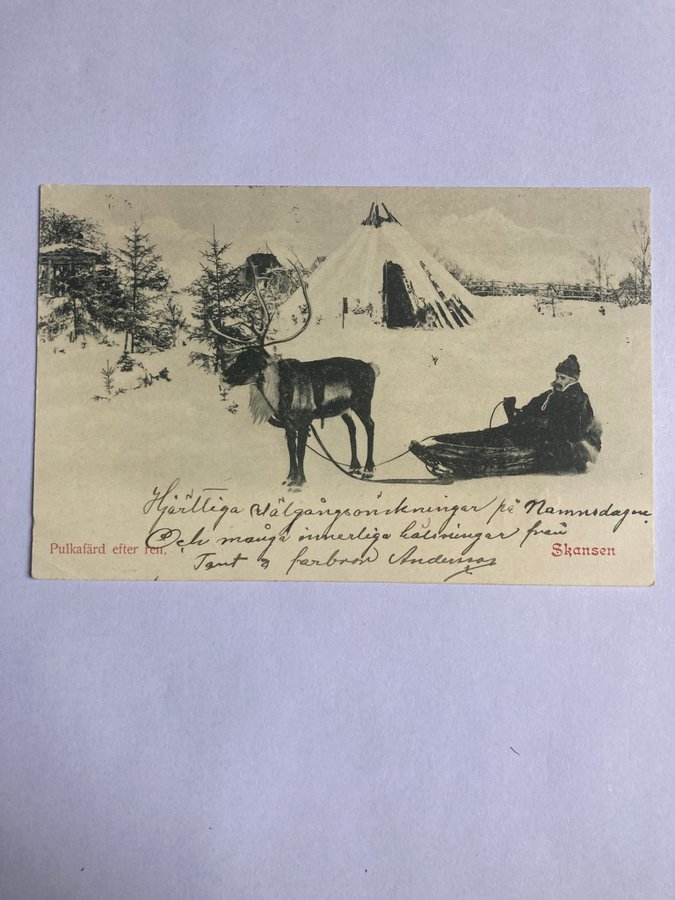 Hjärtliga välgångsönskningar på Namnsdagen
Och många innerliga hälsningar från
Tant o farbror Andersson
Pulkafärd efter ren.
Skansen